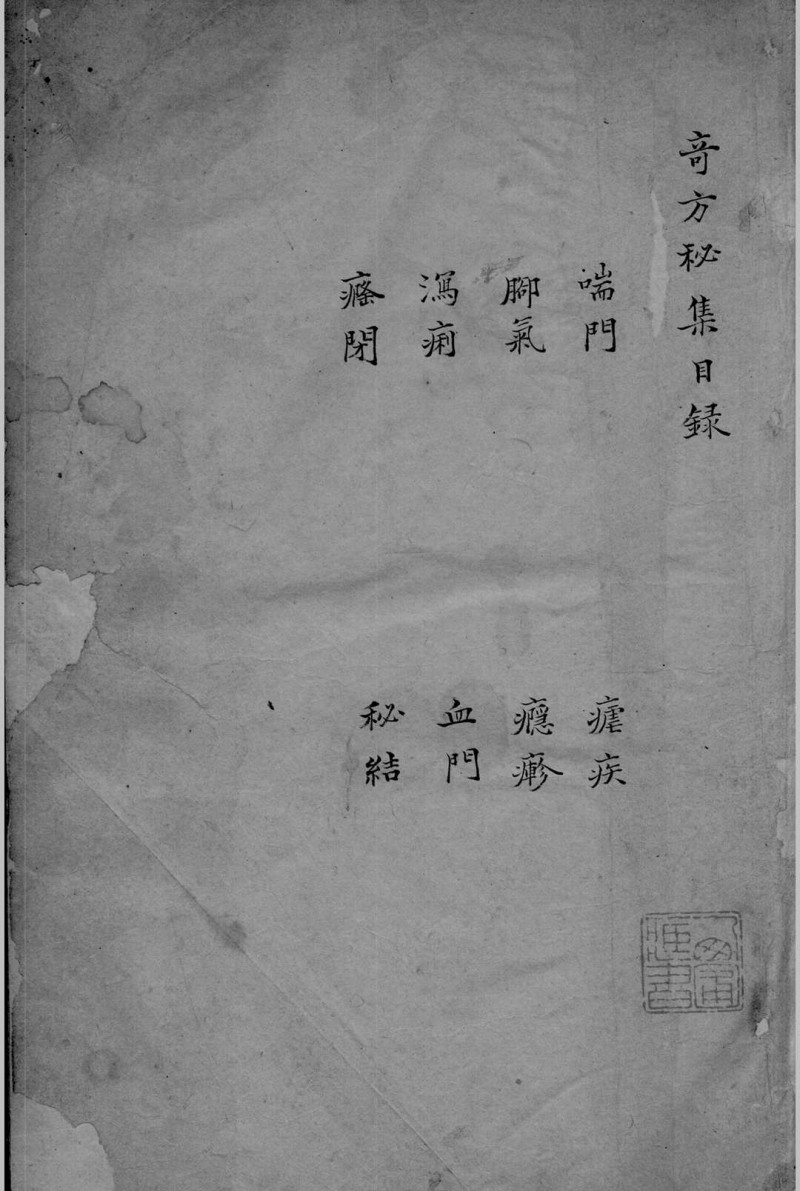 奇方秘集目録
喘門
瘧疾
腳氣
癮疹
瀉痢
血門
癃閉
秘結